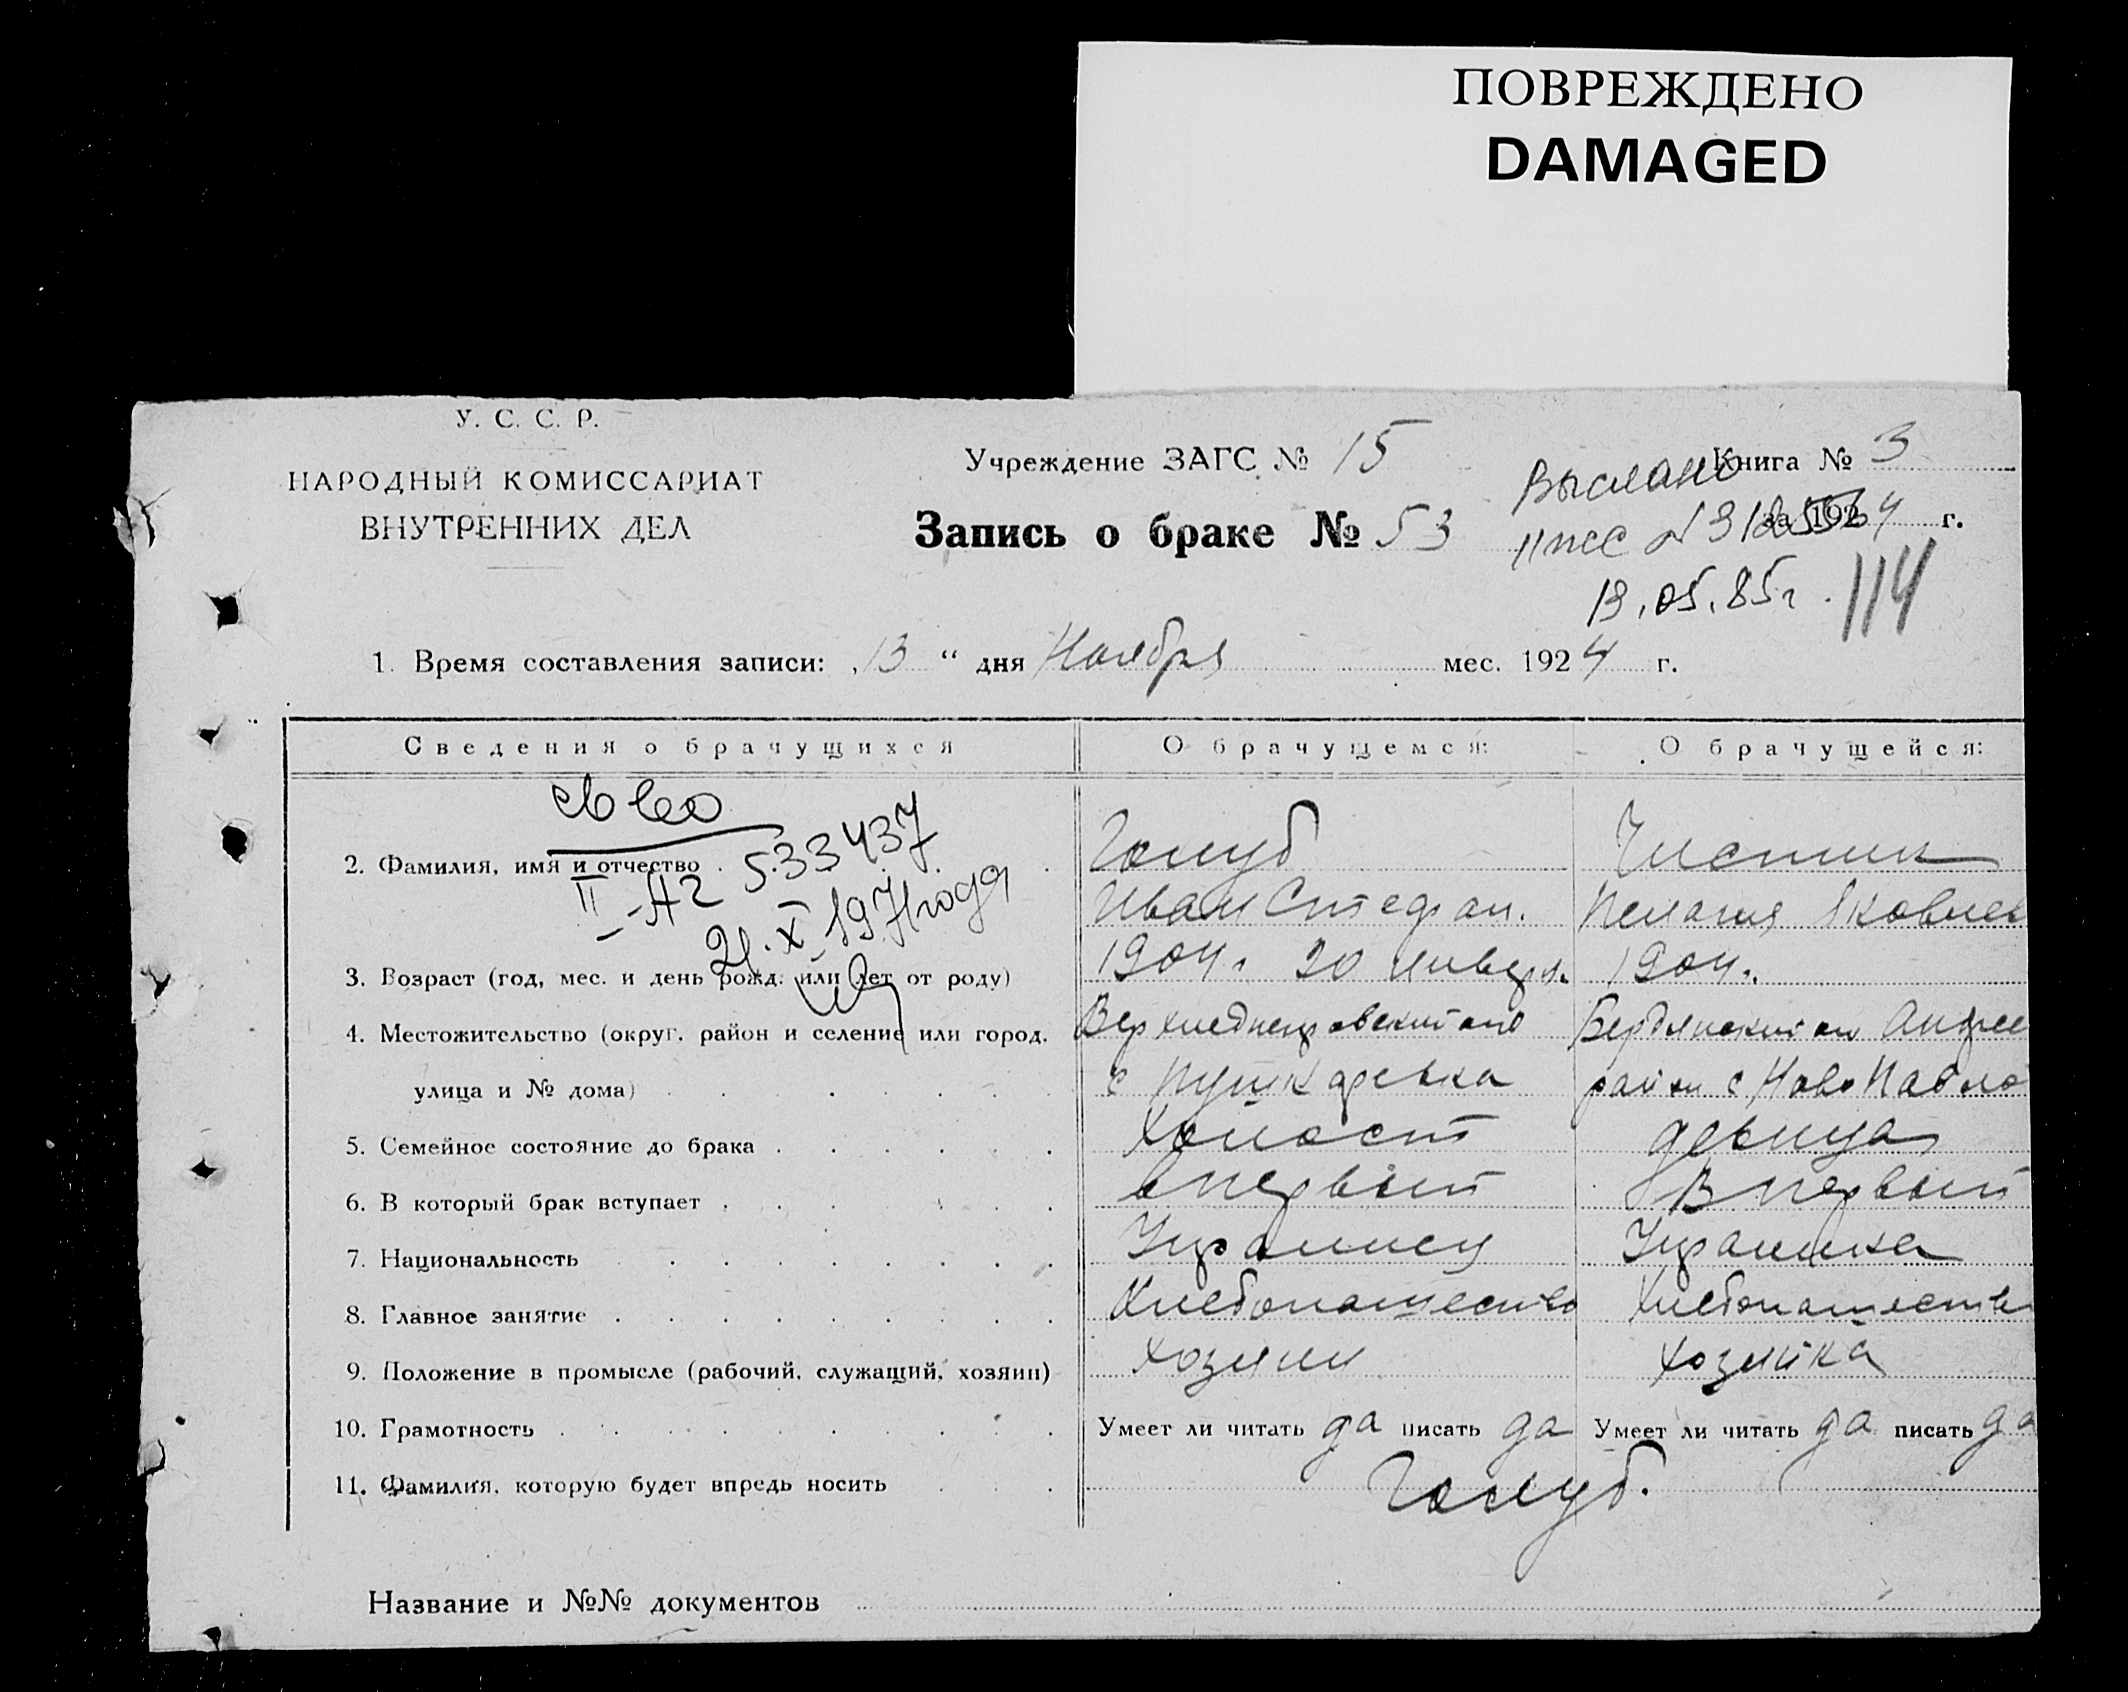 ПОВРЕЖДЕНО
DAMAGED
У. С. С. Р.
НАРОДНЫЙ КОМИССАРИАТ
ВНУТРЕННИХ ДЕЛ
Учреждение ЗАГС № 15
Книга № 3
Запись о браке № 53
за 1924 г.
Выслано
13.05.85г.
114
1. Время составления записи: „13 “ дня Ноября мес. 1924 г.
Сведения о брачущихся О брачущемся: О брачущейся:
II - АГ 533437
21.X.1971года
2. Фамилия, имя и отчество Голуб Чистик
Иван Стефан. Пелагия Яковлев
3. Возраст (год, мес. и день рожд. или лет от роду) 1904г. 20 января 1904г.
4. Местожительство (округ, район и селение или город, Верхнеднепровский Бердянский Андрее
улица и № дома) с Пушкаревка район с Ново Павло
5. Семейное состояние до брака Холост девица
6. В который брак вступает в первый в первый
7. Национальность Украинец Украинка
8. Главное занятие Хлебопашество Хлебопашество
9. Положение в промысле (рабочий, служащий, хозяин) хозяин хозяйка
10. Грамотность Умеет ли читать да писать да Умеет ли читать да писать да
11. Фамилия, которую будет впредь носить Голуб.
Название и №№ документов